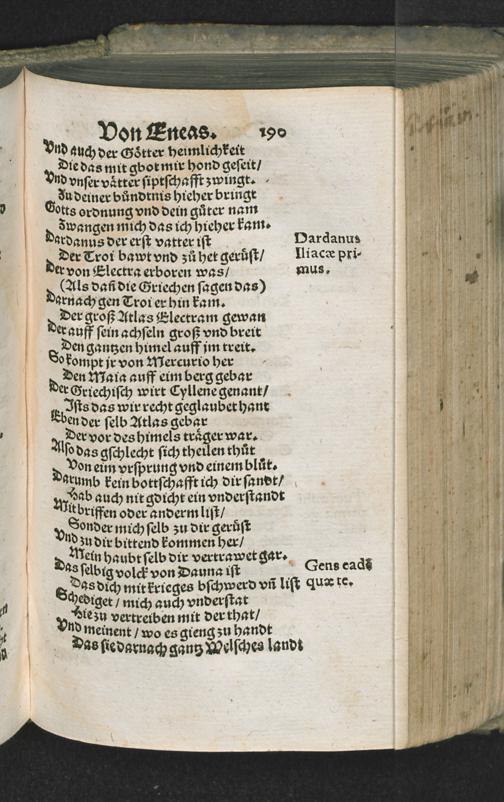 Von Eneas. 190
Vnd auch der Götter heimlichkeit
Die das mit gbot mir hond geseit/
Vnd vnser vätter siptschafft zwingt.
Zu deiner bündtnis hieher bringt
Gotts ordnung vnd dein güter nam
Zwangen mich das ich hieher kam.
Dardanus der erst vatter ist
Der Troi bawt vnd zů het gerüst/
Der von Electra erboren was/
(Als dañ die Griechen sagen das)
Darnach gen Troi er hin kam.
Der groß Atlas Electram gewan
Der auff sein achseln groß vnd breit
Den gantzen himel auff jm treit.
So kompt jr von Mercurio her
Den Maia auff eim berg gebar
Der Griechisch wirt Cyllene genant/
Ists das wir recht geglaubet hant
Eben der selb Atlas gebar
Der vor des himels träger war.
Also das gschlecht sich theilen thůt
Von eim vrsprung vnd einem blůt.
Darumb kein bottschafft ich dir sandt/
Hab auch nit gdicht ein vnderstandt
Mit briffen oder anderm list/
Sonder mich selb zu dir gerüst
Vnd zu dir bittend kommen her/
Mein haubt selb dir vertrawet gar.
Das selbig volck von Dauna ist
Das dich mit krieges bschwerd vñ list
Schediget / mich auch vnderstat
Hie zu vertreiben mit der that/
Vnd meinent / wo es gieng zu handt
Das sie darnach gantz Welsches landt
Dardanus
Iliacæ pri-
mus.
Gens eadē
quæ ꝛc.